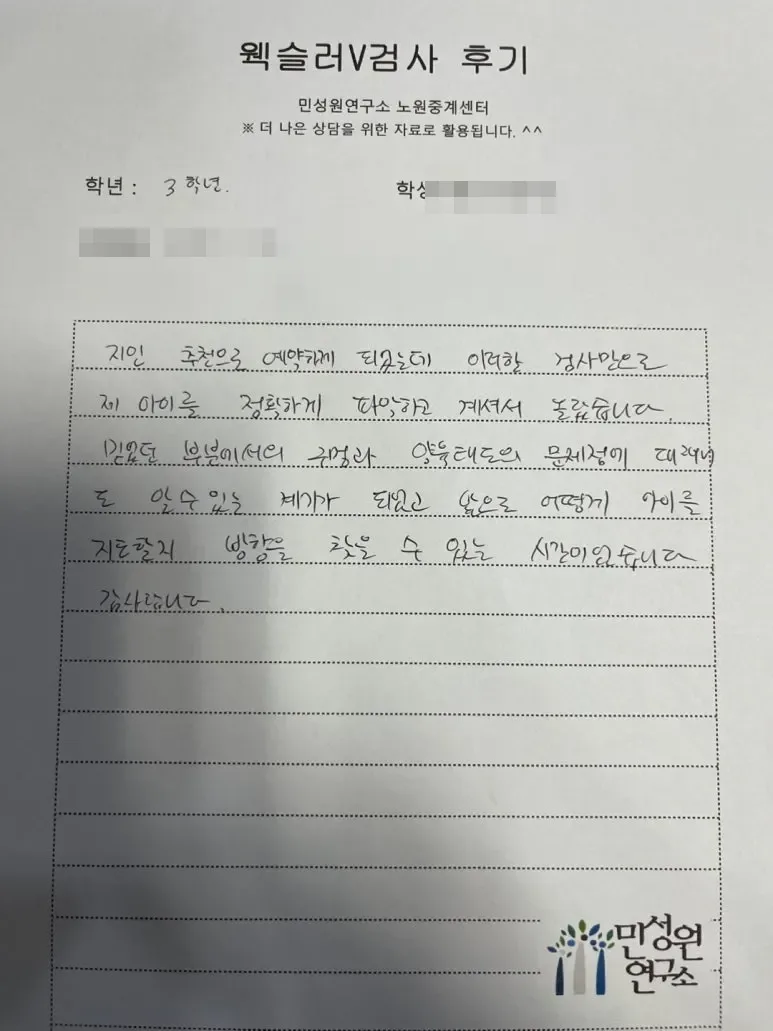 웩슬러V검사 후기
민성원연구소 노원중계센터
※ 더 나은 상담을 위한 자료로 활용됩니다. ^^
학년 : 3학년.
지인 추천으로 예약하게 되었는데 이러한 검사만으로
제 아이를 정확하게 파악하고 계셔서 놀랐습니다.
믿었던 부분에서의 구멍과 양육태도의 문제점에 대해서
도 알 수 있는 계기가 되었고 앞으로 어떻게 아이를
지도할지 방향을 찾을 수 있는 시간이었습니다
감사합니다.
민성원
연구소